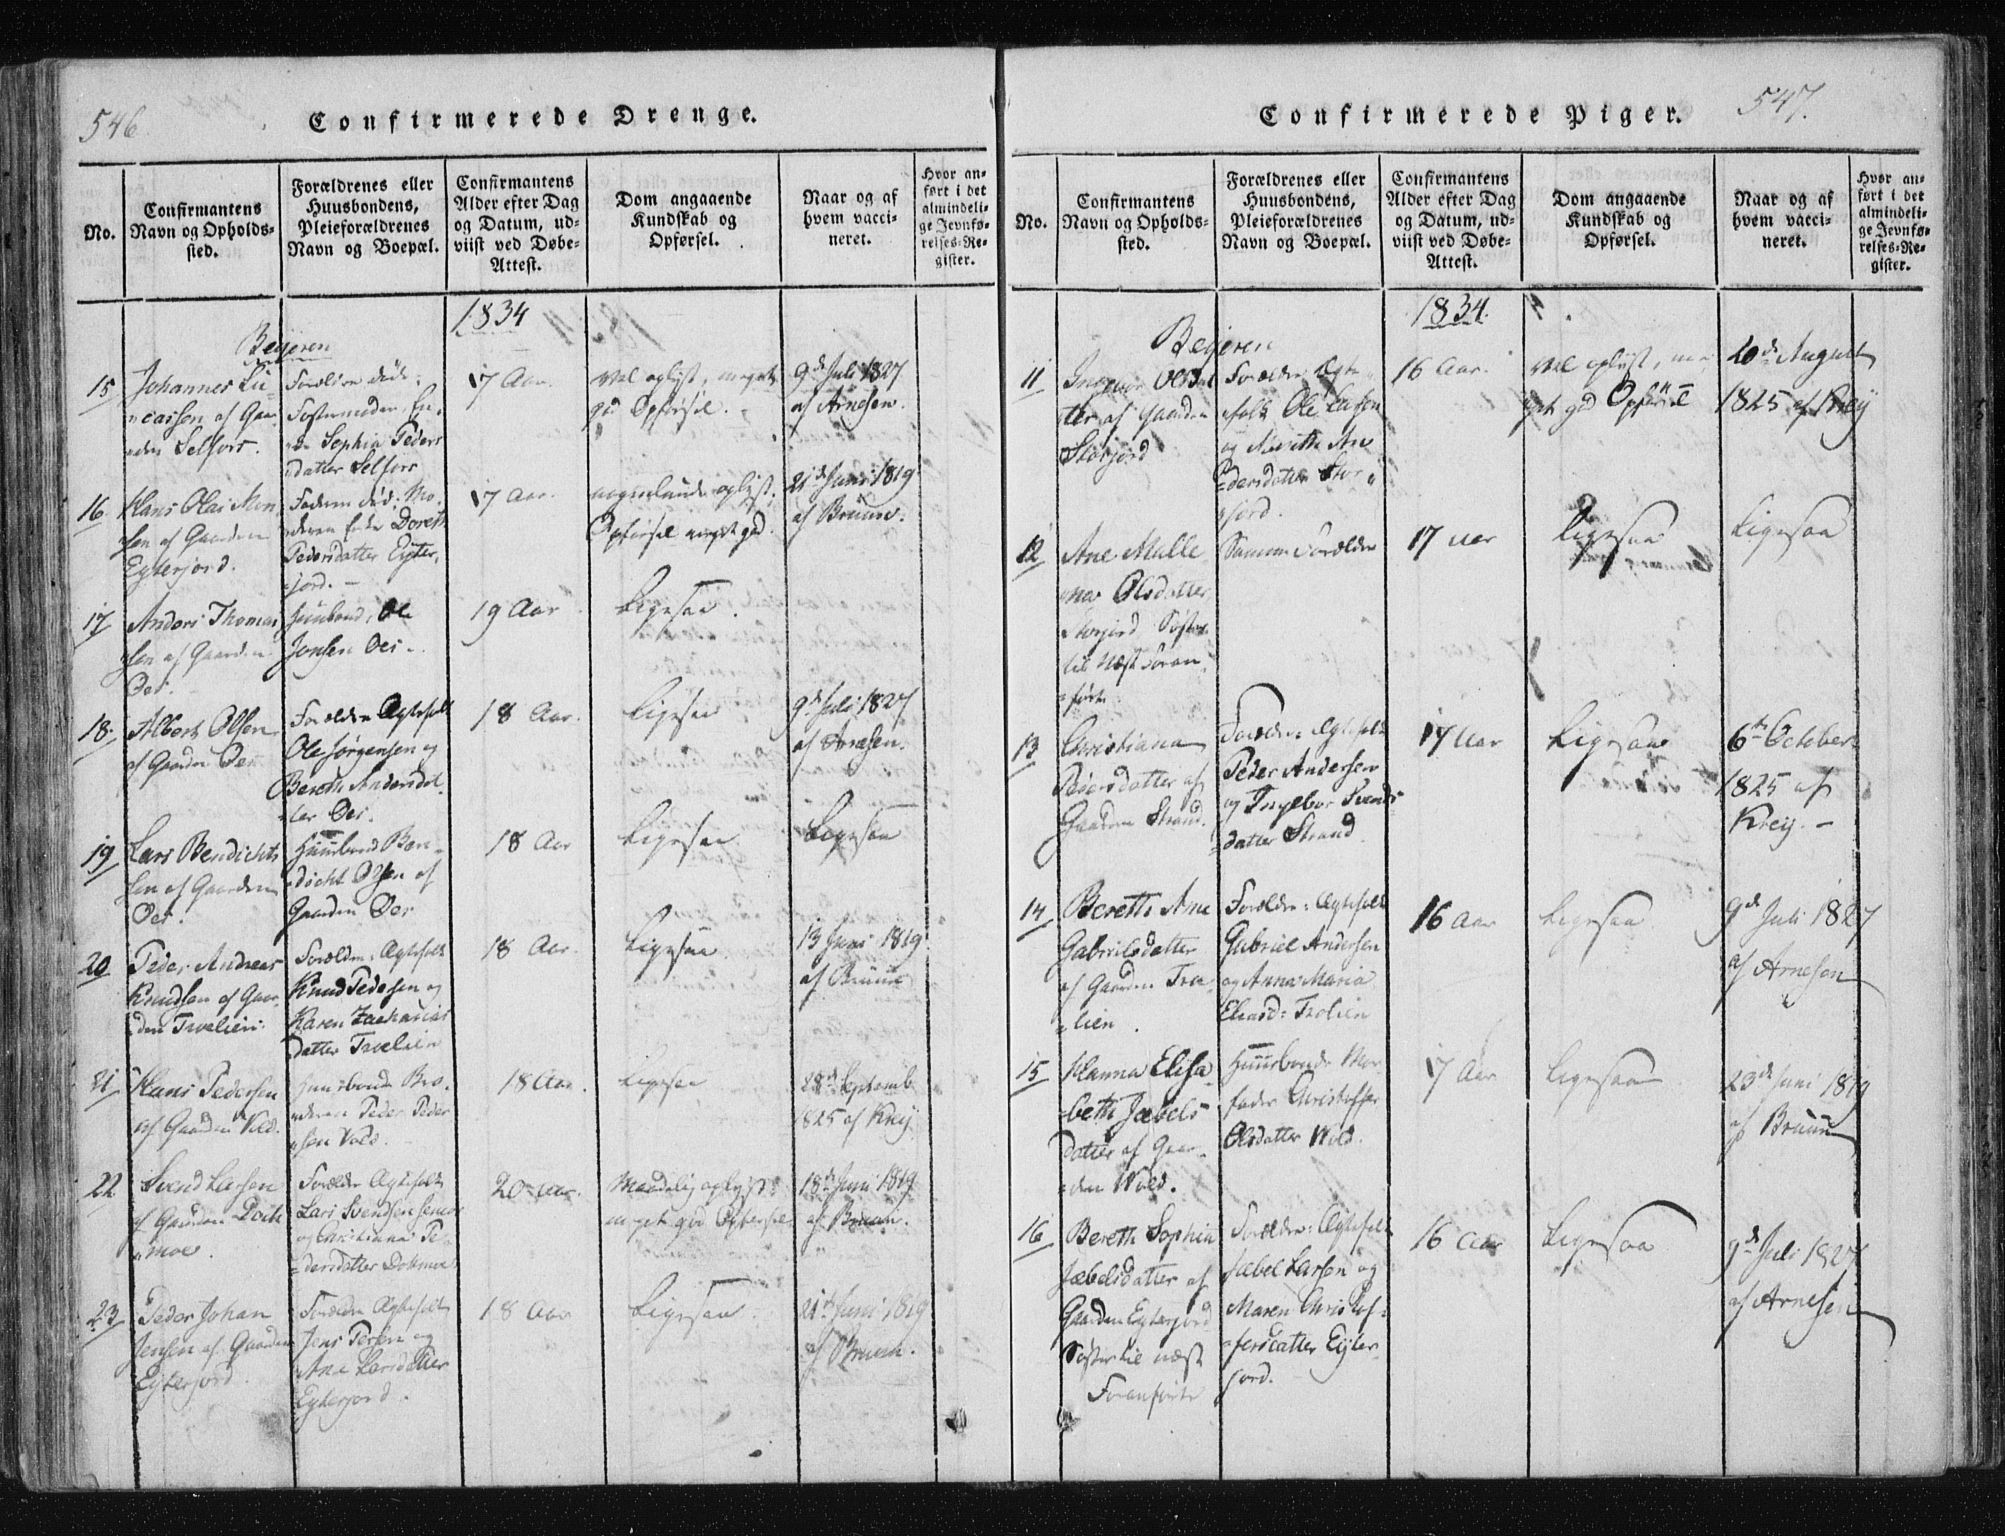 546
Confirmerede Drenge.
No.
Confirmantens
Navn og Opholds-
sted.
Forældrenes eller
Huusbondens,
Pleieforældrenes
Navn og Boepæl.
Confirmantens
Alder efter Dag
og Datum, ud-
viist ved Døbe-
Attest.
Dom angaaende
Kundskab og
Opførsel.
Naar og af
hvem vacci-
neret.
Hvor an-
ført i det
almindeli-
ge Jevnfø-
relses-Re-
gister.
1834
Beyeren
15
Johannes Lu-
cassen af Gaar-
den Selfors.
Forældre døde.
Fostermoder, En-
ke Sophia Peders
datter Selfors
17 Aar.
vel oplyst, meget
god Opførsel.
9de Juli 1827
af Arnesen.
16.
Hans Olai Mon
sen af Gaarden
Eyterjord.
Faderen død. Mo-
deren Enke Doreth
Pedersdatter Eyter-
jord.
17 Aar.
nogenlunde oplyst.
Opførsel meget god.
21de Juni 1819
af Bruun.
17
Anders Thomas
sen af Gaarden
Oes.
Huusbond, Ole
Jonsen Oes.
19 Aar
Ligesaa.
18.
Albert Olsen
af Gaarden Oes
Forældre Ægtefolk
Ole Jørgensen og
Bereth Andersdat-
ter Oes.
18 Aar.
Ligesaa
9de Juli 1827
af Arnesen.
19
Lars Bendichts
sen af Gaarden
Oes.
Huusbond Ben-
dicht Olsen af
Gaarden Oes
18 Aar
Ligesaa
Ligesaa
20
Peder Andreas
Knudsen af Gaar-
den Troelien.
Forældre: Ægtefolk
Knud Pedersen og
Karen Zacharias
datter Troelien
18 Aar.
Ligesaa.
13 Juni 1819.
af Bruun
21
Hans Pedersen
af Gaarden Vold.
Huusbond Bro-
deren Peder Peder
sen Vold.
18 Aar.
Ligesaa
28de Septemb
1825 af Kreij
22
Svend Larsen
af Gaarden
moe.
Forældre Ægtefolk
Lars Svendsen
og Christiana Pe-
dersdatter
20 Aar.
Maadelig oplyst,
meget god Opførsel
18de Juni 1819
af Bruun.
23
Peder Johan
Jensen af Gaarden
Eyterjord.
Forældre Ægtefolk
Jens
og
Ane Larsdatter
Eyterjord.
18 Aar
Ligesaa.
21de Juni 1819
af Bruun.
547.
Confirmerede Piger.
No.
Confirmantens
Navn og Opholds-
sted.
Forældrenes eller
Huusbondens,
Pleieforældrenes
Navn og Boepæl.
Confirmantens
Alder efter Dag
og Datum, ud-
viist ved Døbe-
Attest.
Dom angaaende
Kundskab og
Opførsel.
Naar og af
hvem vacci-
neret.
Hvor an-
ført i det
almindeli-
ge Jevnfø-
relses-Re-
gister.
1834.
Beyeren
11
Olsdat
ter af Gaarden
Storjord
Forældre Ægte-
folk Ole Larsen
og An-
dersdatter Stor-
jord.
16 Aar.
vel oplyst, me-
get god Opførsel
20de August
1825 af Kreij
12
Ane Malle
na Olsdatter
Storjord Søster
til næst foran-
ført
Samme Forældre
17 Aar
Ligesaa
Ligesaa
13
Christiana
Pedersdatter af
Gaarden Strand.
Forældre: Ægtefolk
Peder Andersen
og Ingebor Svends
datter Strand
17 Aar
Ligesaa
6te October
1825 af
Kreij.
14
Bereth Ane
Gabrielsdatter
af Gaarden Troe-
lien.
Forældre: Ægtefolk
Gabriel Andersen
og Anna Maria
Eliasd: Trolien
16 Aar
Ligesaa
9de Juli 1827
af Arnesen
15
Hanna Elisa-
beth Jæbels
datter af Gaar-
den Wold.
Huusbonde Mor-
fader Christoffer
Olsdatter Wold.
17 Aar
Ligesaa
23de Juni 1819
af Bruun
16
Bereth Sophia
Jæbelsdatter af
Gaarden Eyterjord
Søster til næst
Foranførte
Forældre: Ægtefolk
Jæbel Larsen og
Maren Christof-
fersdatter Eyter-
jord.
16 Aar
Ligesaa
9de Juli 1827
af Arnesen